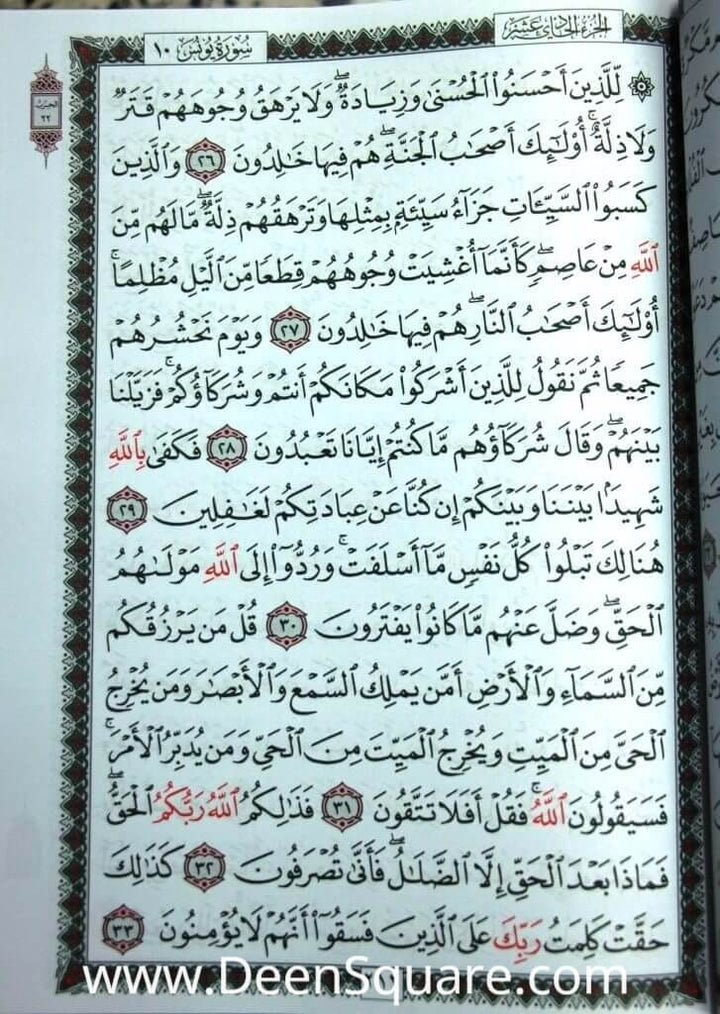 الجزء الحادي عشر
سورة يونس ١٠
الحزب ٢٢
۞ لِّلَّذِينَ أَحْسَنُوا۟ ٱلْحُسْنَىٰ وَزِيَادَةٌ ۖ وَلَا يَرْهَقُ وُجُوهَهُمْ قَتَرٌ
وَلَا ذِلَّةٌ ۚ أُو۟لَـٰٓئِكَ أَصْحَـٰبُ ٱلْجَنَّةِ ۖ هُمْ فِيهَا خَـٰلِدُونَ ٢٦ وَٱلَّذِينَ
كَسَبُوا۟ ٱلسَّيِّـَٔاتِ جَزَآءُ سَيِّئَةٍۭ بِمِثْلِهَا وَتَرْهَقُهُمْ ذِلَّةٌ ۖ مَّا لَهُم مِّنَ
ٱللَّهِ مِنْ عَاصِمٍ ۖ كَأَنَّمَآ أُغْشِيَتْ وُجُوهُهُمْ قِطَعًا مِّنَ ٱلَّيْلِ مُظْلِمًا ۚ
أُو۟لَـٰٓئِكَ أَصْحَـٰبُ ٱلنَّارِ ۖ هُمْ فِيهَا خَـٰلِدُونَ ٢٧ وَيَوْمَ نَحْشُرُهُمْ
جَمِيعًا ثُمَّ نَقُولُ لِلَّذِينَ أَشْرَكُوا۟ مَكَانَكُمْ أَنتُمْ وَشُرَكَآؤُكُمْ ۚ فَزَيَّلْنَا
بَيْنَهُمْ ۖ وَقَالَ شُرَكَآؤُهُم مَّا كُنتُمْ إِيَّانَا تَعْبُدُونَ ٢٨ فَكَفَىٰ بِٱللَّهِ
شَهِيدًۢا بَيْنَنَا وَبَيْنَكُمْ إِن كُنَّا عَنْ عِبَادَتِكُمْ لَغَـٰفِلِينَ ٢٩
هُنَالِكَ تَبْلُوا۟ كُلُّ نَفْسٍ مَّآ أَسْلَفَتْ ۚ وَرُدُّوٓا۟ إِلَى ٱللَّهِ مَوْلَىٰهُمُ
ٱلْحَقِّ ۖ وَضَلَّ عَنْهُم مَّا كَانُوا۟ يَفْتَرُونَ ٣٠ قُلْ مَن يَرْزُقُكُم
مِّنَ ٱلسَّمَآءِ وَٱلْأَرْضِ أَمَّن يَمْلِكُ ٱلسَّمْعَ وَٱلْأَبْصَـٰرَ وَمَن يُخْرِجُ
ٱلْحَىَّ مِنَ ٱلْمَيِّتِ وَيُخْرِجُ ٱلْمَيِّتَ مِنَ ٱلْحَىِّ وَمَن يُدَبِّرُ ٱلْأَمْرَ ۚ
فَسَيَقُولُونَ ٱللَّهُ ۚ فَقُلْ أَفَلَا تَتَّقُونَ ٣١ فَذَٰلِكُمُ ٱللَّهُ رَبُّكُمُ ٱلْحَقُّ ۖ
فَمَاذَا بَعْدَ ٱلْحَقِّ إِلَّا ٱلضَّلَـٰلُ ۖ فَأَنَّىٰ تُصْرَفُونَ ٣٢ كَذَٰلِكَ
حَقَّتْ كَلِمَتُ رَبِّكَ عَلَى ٱلَّذِينَ فَسَقُوٓا۟ أَنَّهُمْ لَا يُؤْمِنُونَ ٣٣
www.DeenSquare.com